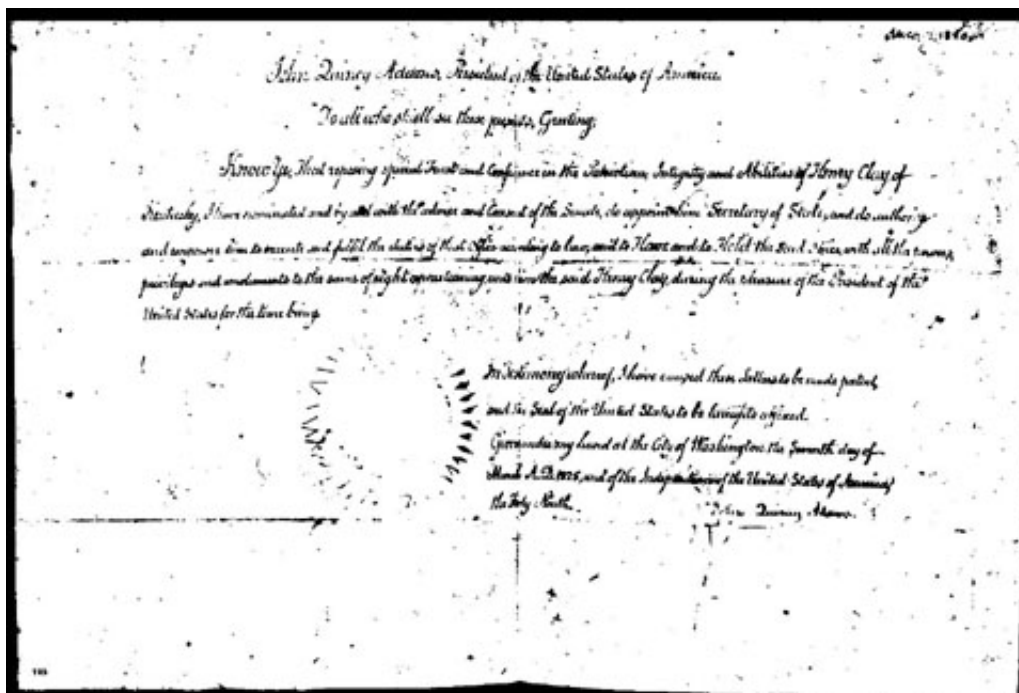 John Quincy Adams, President of the United States of America.
To all who shall see these presents, Greeting:
Know Ye, That reposing special Trust and Confidence in the Patriotism, Integrity and Abilities of Henry Clay of
Kentucky, I have nominated and by and with the advice and Consent of the Senate, do appoint him Secretary of State, and do authorize
and empower him to execute and fulfil the duties of that Office according to law; and to Have and to Hold the said Office, with all the powers,
privileges and emoluments to the same of right appertaining, unto him the said Henry Clay, during the pleasure of the President of the
United States for the time being.
In testimony whereof, I have caused these Letters to be made patent,
and the Seal of the United States to be hereunto affixed.
Given under my hand at the City of Washington the Seventh day of
March A.D. 1825, and of the Independence of the United States of America,
the Forty Ninth.
John Quincy Adams.